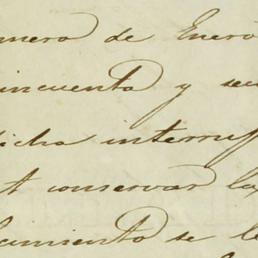 mero de Enero
incuenta y se
dicha interrup
t conservar la
amiento se le